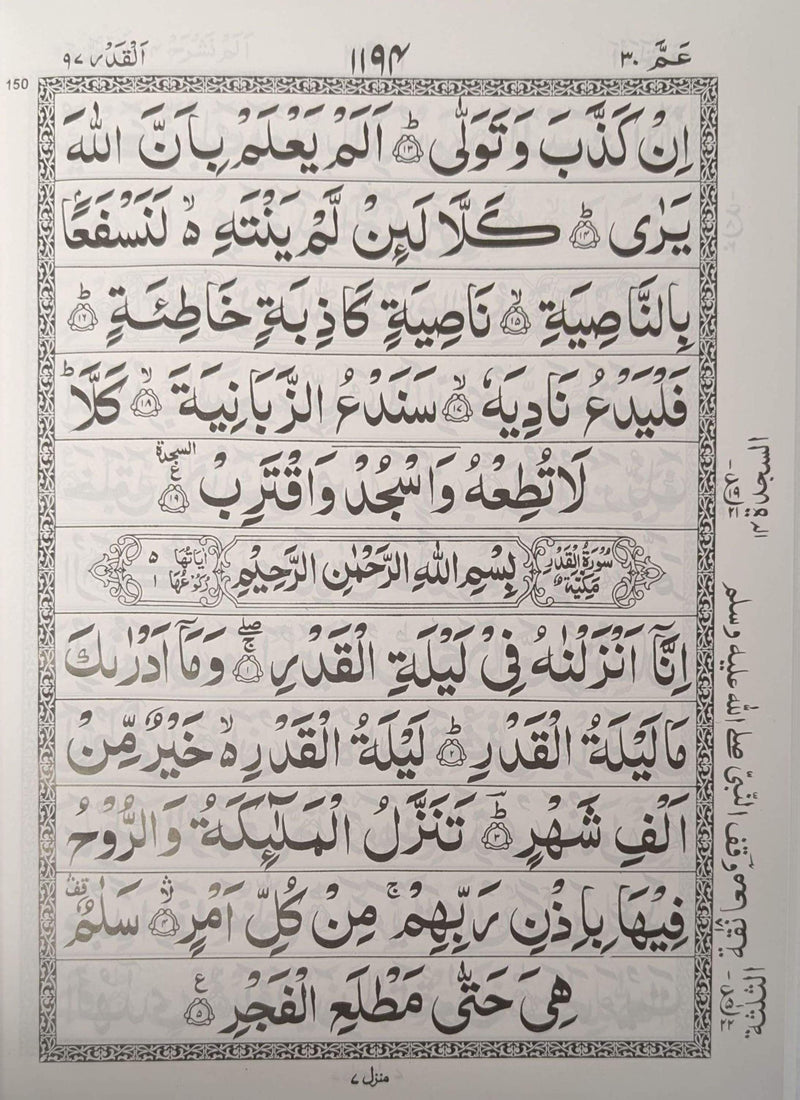 عَمَّ ٣٠
١١٩٤
اَلْقَدْرِ ٩٧
150
اِنْ كَذَّبَ وَتَوَلّٰى ؕ ﴿۱۳﴾ اَلَمْ يَعْلَمْ بِاَنَّ اللّٰهَ
يَرٰى ؕ ﴿۱۴﴾ كَلَّا لَئِنْ لَّمْ يَنْتَهِ ۙ۬ لَنَسْفَعًۢا
بِالنَّاصِيَةِ ۙ ﴿۱۵﴾ نَاصِيَةٍ كَاذِبَةٍ خَاطِئَةٍ ؕ ﴿۱۶﴾
فَلْيَدْعُ نَادِيَهٗ ۙ ﴿۱۷﴾ سَنَدْعُ الزَّبَانِيَةَ ۙ ﴿۱۸﴾ كَلَّا ؕ
لَا تُطِعْهُ وَاسْجُدْ وَاقْتَرِبْ ﴿۱۹﴾ السجدة ع
سُوْرَةُ الْقَدْرِ مَكِّيَّةٌ
بِسْمِ اللّٰهِ الرَّحْمٰنِ الرَّحِيْمِ
اٰيَاتُهَا ٥ رُكُوْعُهَا ١
اِنَّاۤ اَنْزَلْنٰهُ فِيْ لَيْلَةِ الْقَدْرِ ۖۚ ﴿۱﴾ وَمَاۤ اَدْرٰىكَ
مَا لَيْلَةُ الْقَدْرِ ؕ ﴿۲﴾ لَيْلَةُ الْقَدْرِ ۙ۬ خَيْرٌ مِّنْ
اَلْفِ شَهْرٍ ؕ ﴿۳﴾ تَنَزَّلُ الْمَلٰٓئِكَةُ وَالرُّوْحُ
فِيْهَا بِاِذْنِ رَبِّهِمْ ۚ مِنْ كُلِّ اَمْرٍ ۙ ﴿۴﴾ سَلٰمٌ
هِيَ حَتّٰى مَطْلَعِ الْفَجْرِ ﴿۵﴾ ع
منزل ٧
السجدة
وقف النبي صلى الله عليه وسلم
الثلثة